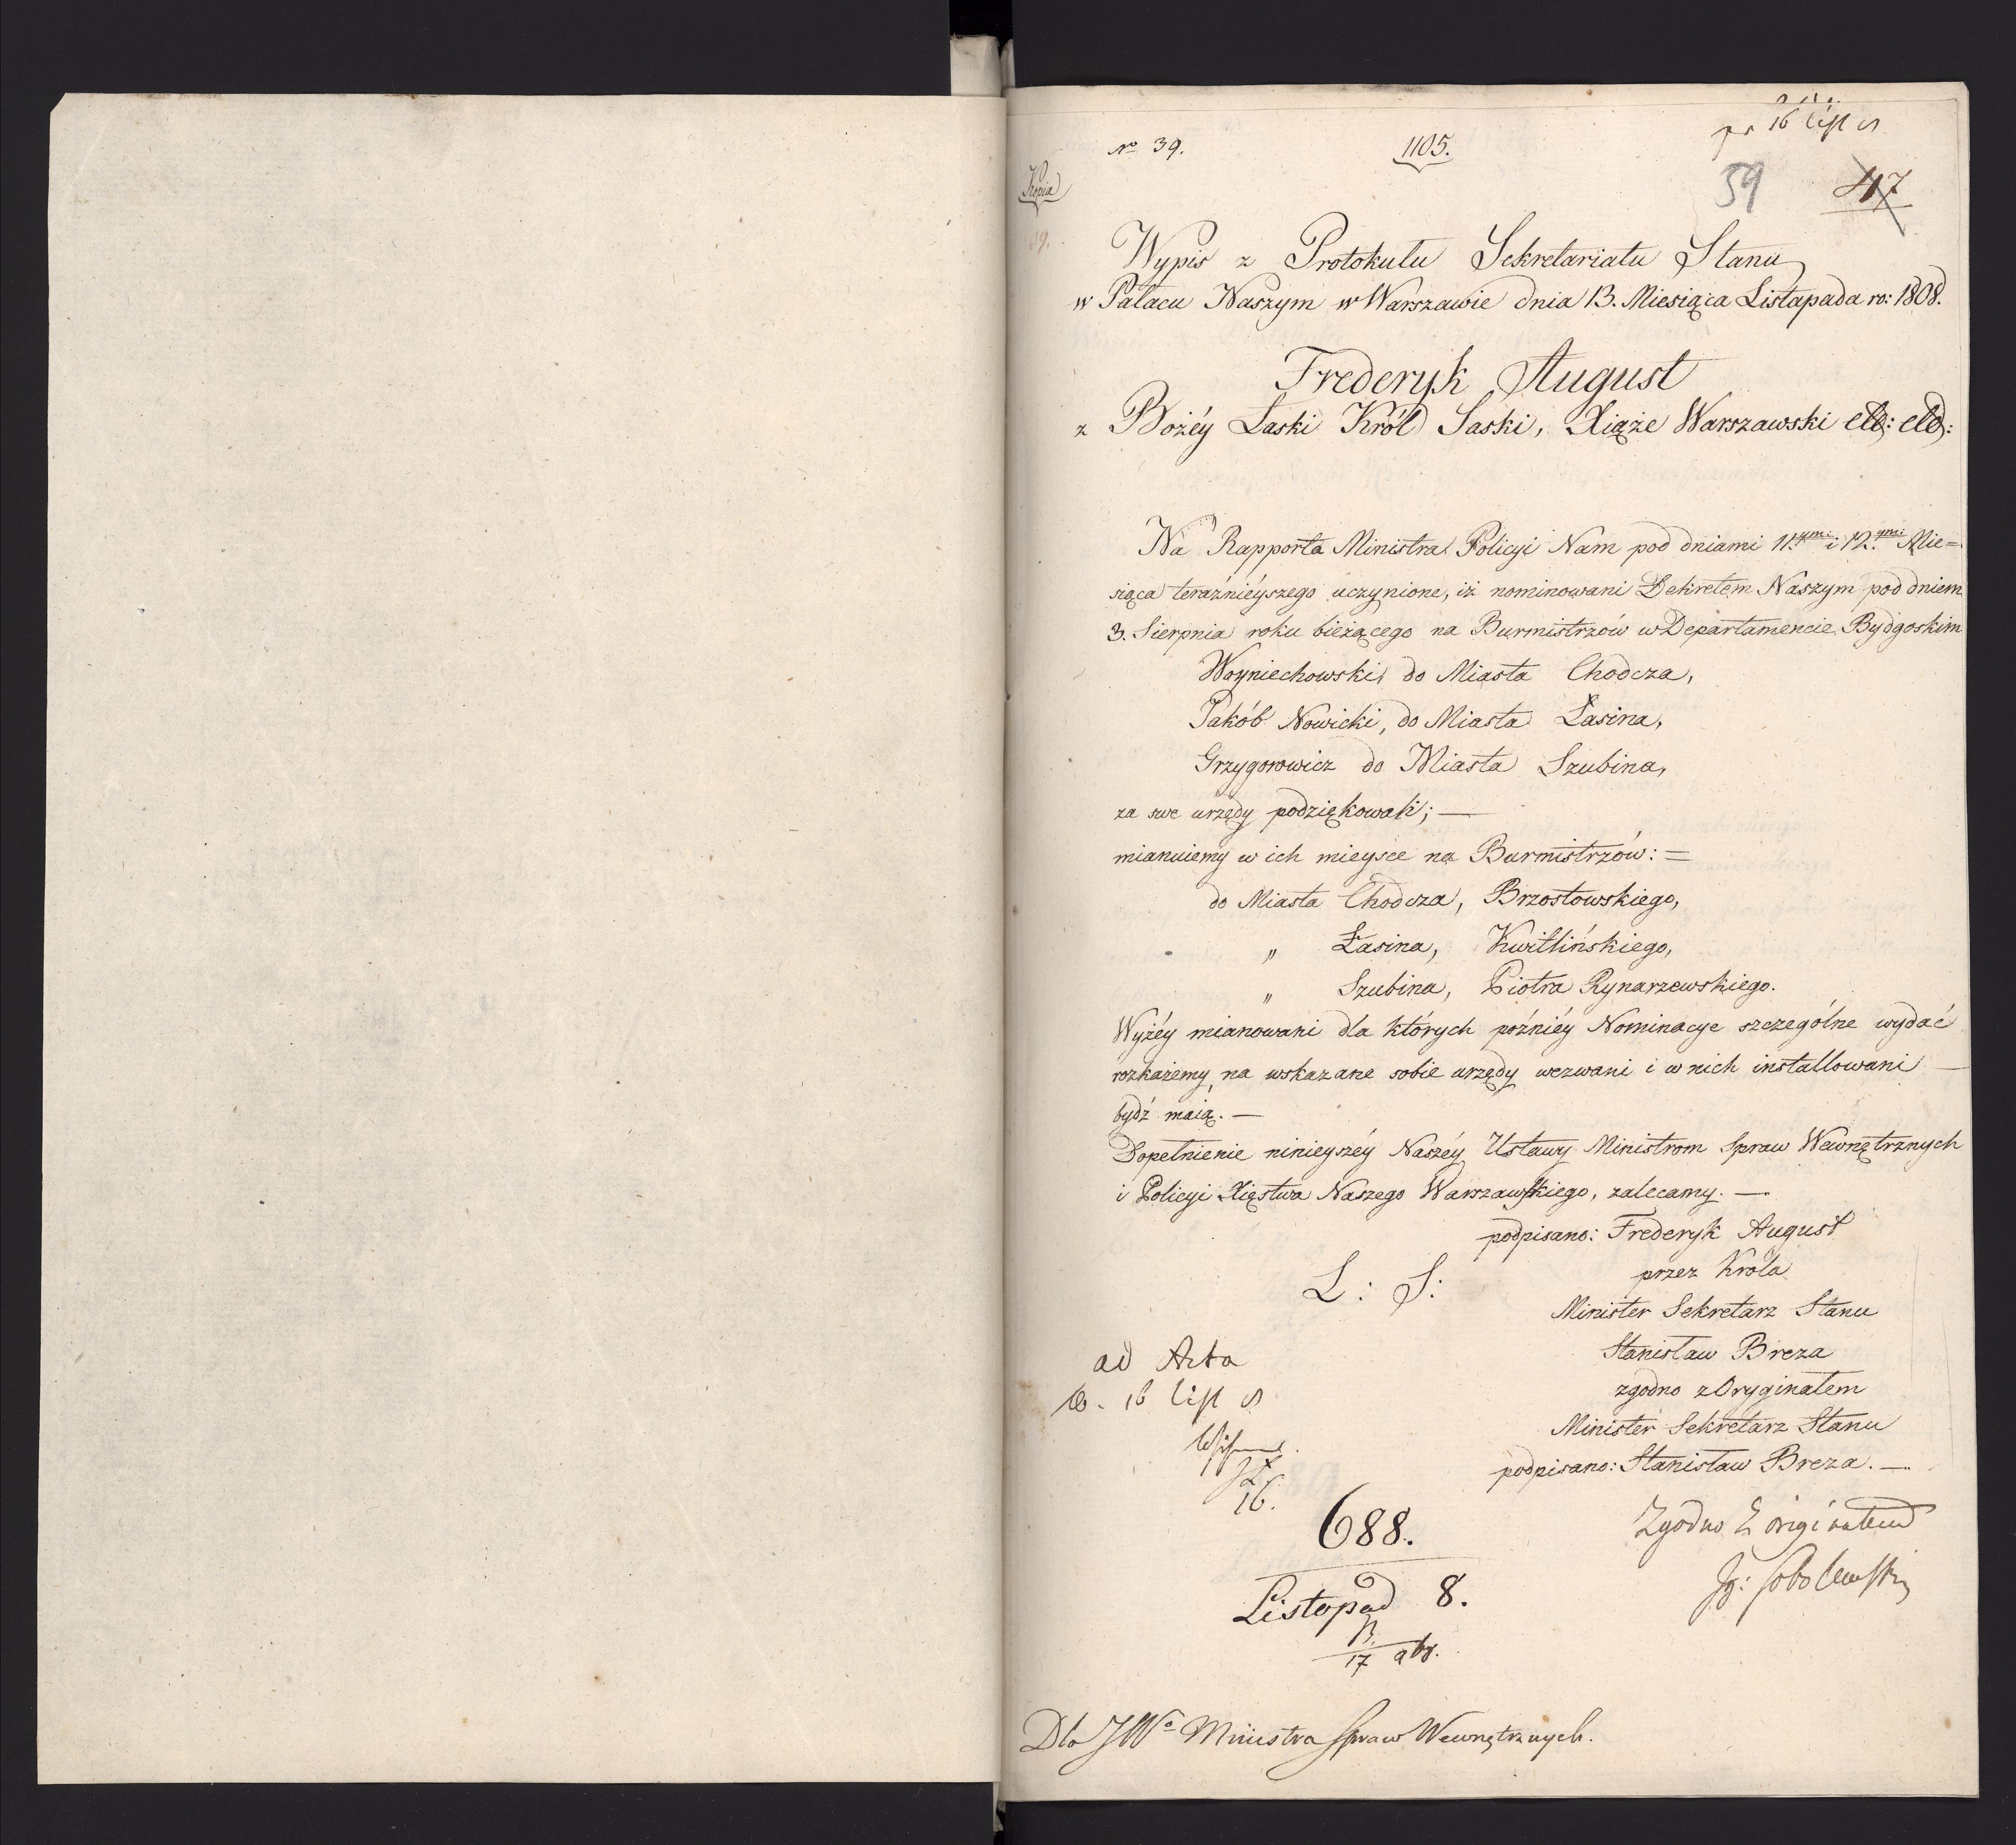 No 39.
1105.
pr 16 List
Kopia
59 47
39.
Wypis z Protokułu Sekretariatu Stanu
w Pałacu Naszym w Warszawie dnia 13. Miesiąca Listapada ro: 1808.
Frederyk August
z Bożéy Łaski Król Saski, Xiąże Warszawski etc: etc:
Na Rapporta Ministra Policyi Nam pod dniami 11.ym: i 12.ym: Mie=
siąca teraźnieyszego uczynione, iż nominowani Dekretem Naszym pod dniem
3. Sierpnia roku bieżącego na Burmistrzów w Departamencie Bydgoskim
Woyniechowski, do Miasta Chodcza,
Jakób Nowicki, do Miasta Łasina,
Grzygorowicz do Miasta Szubina,
za swe urzędy podziękowali; —
mianuiemy w ich mieysce na Burmistrzów: =
do Miasta Chodcza, Brzostowskiego,
„ Łasina, Kwitlińskiego,
„ Szubina, Piotra Rynarzewskiego.
Wyżéy mianowani dla których późniéy Nominacye szczególne wydać
rozkażemy, na wskazane sobie urzędy wezwani i w nich installowani —
bydź maią. —
Dopełnienie ninieyszéy Naszéy Ustawy Ministrom Spraw Wewnętrznych
i Policyi Xięstwa Naszego Warszawskiego, zalecamy. —
podpisano: Frederyk August
przez Króla
L: S:
Minister Sekretarz Stanu
Stanisław Breza
ad Acta
zgodno z Oryginałem
16 List
Minister Sekretarz Stanu
podpisano: Stanisław Breza. —
16.
688.
Zgodno z originałem
Listopad 8.
Jg: Sobolewski
17 9br.
Dla JWo Ministra Spraw Wewnętrznych.